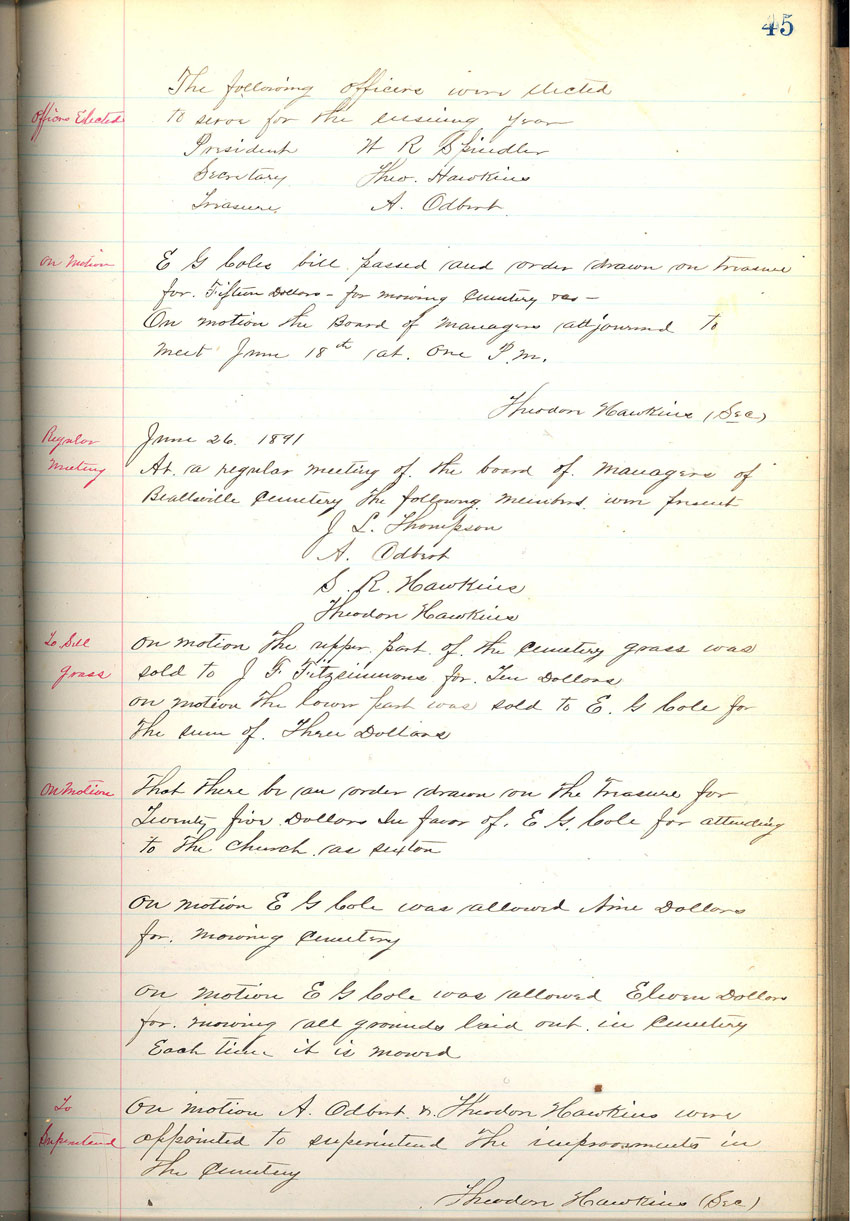 45
The following officers were elected
Officers Elected
to serve for the ensuing year
President W R Spindler
Secretary Theo. Hawkins
Treasure A. Odbert
On Motion
E G Coles bill passed and order drawn on treasure
for. Fifteen Dollars - for mowing Cemetery
On motion the Board of Managers adjourned to
meet June 18th at. One P.M.
Theodore Hawkins (Sec)
Regular
Meeting
June 26. 1891
At. a regular meeting of. the board of. Managers of
Beallsville Cemetery the following members were present
J L. Thompson
A. Odbert
S. R. Hawkins
Theodore Hawkins
To Sell
grass
on motion the upper part of. the Cemetery grass was
sold to J F. Fitzsimmons for. Ten Dollars
on motion the lower part was sold to E. G Cole for
the sum of. Three Dollars
On Motion
That there be an order drawn on the Treasure for
Twenty five Dollars In favor of. E G. Cole for attending
to the church as sexton
On motion E G Cole was allowed Nine Dollars
for. mowing Cemetery
on motion E G Cole was allowed Eleven Dollars
for. mowing all grounds laid out in Cemetery
Each time it is mowed
To
Superintend
On motion A. Odbert & Theodore Hawkins were
appointed to superintend the improvements in
the Cemetery
Theodore Hawkins (Sec)